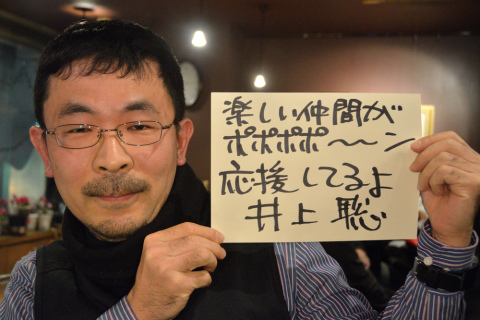 楽しい仲間が
ポポポポ〜〜ン
応援してるよ
井上 聡